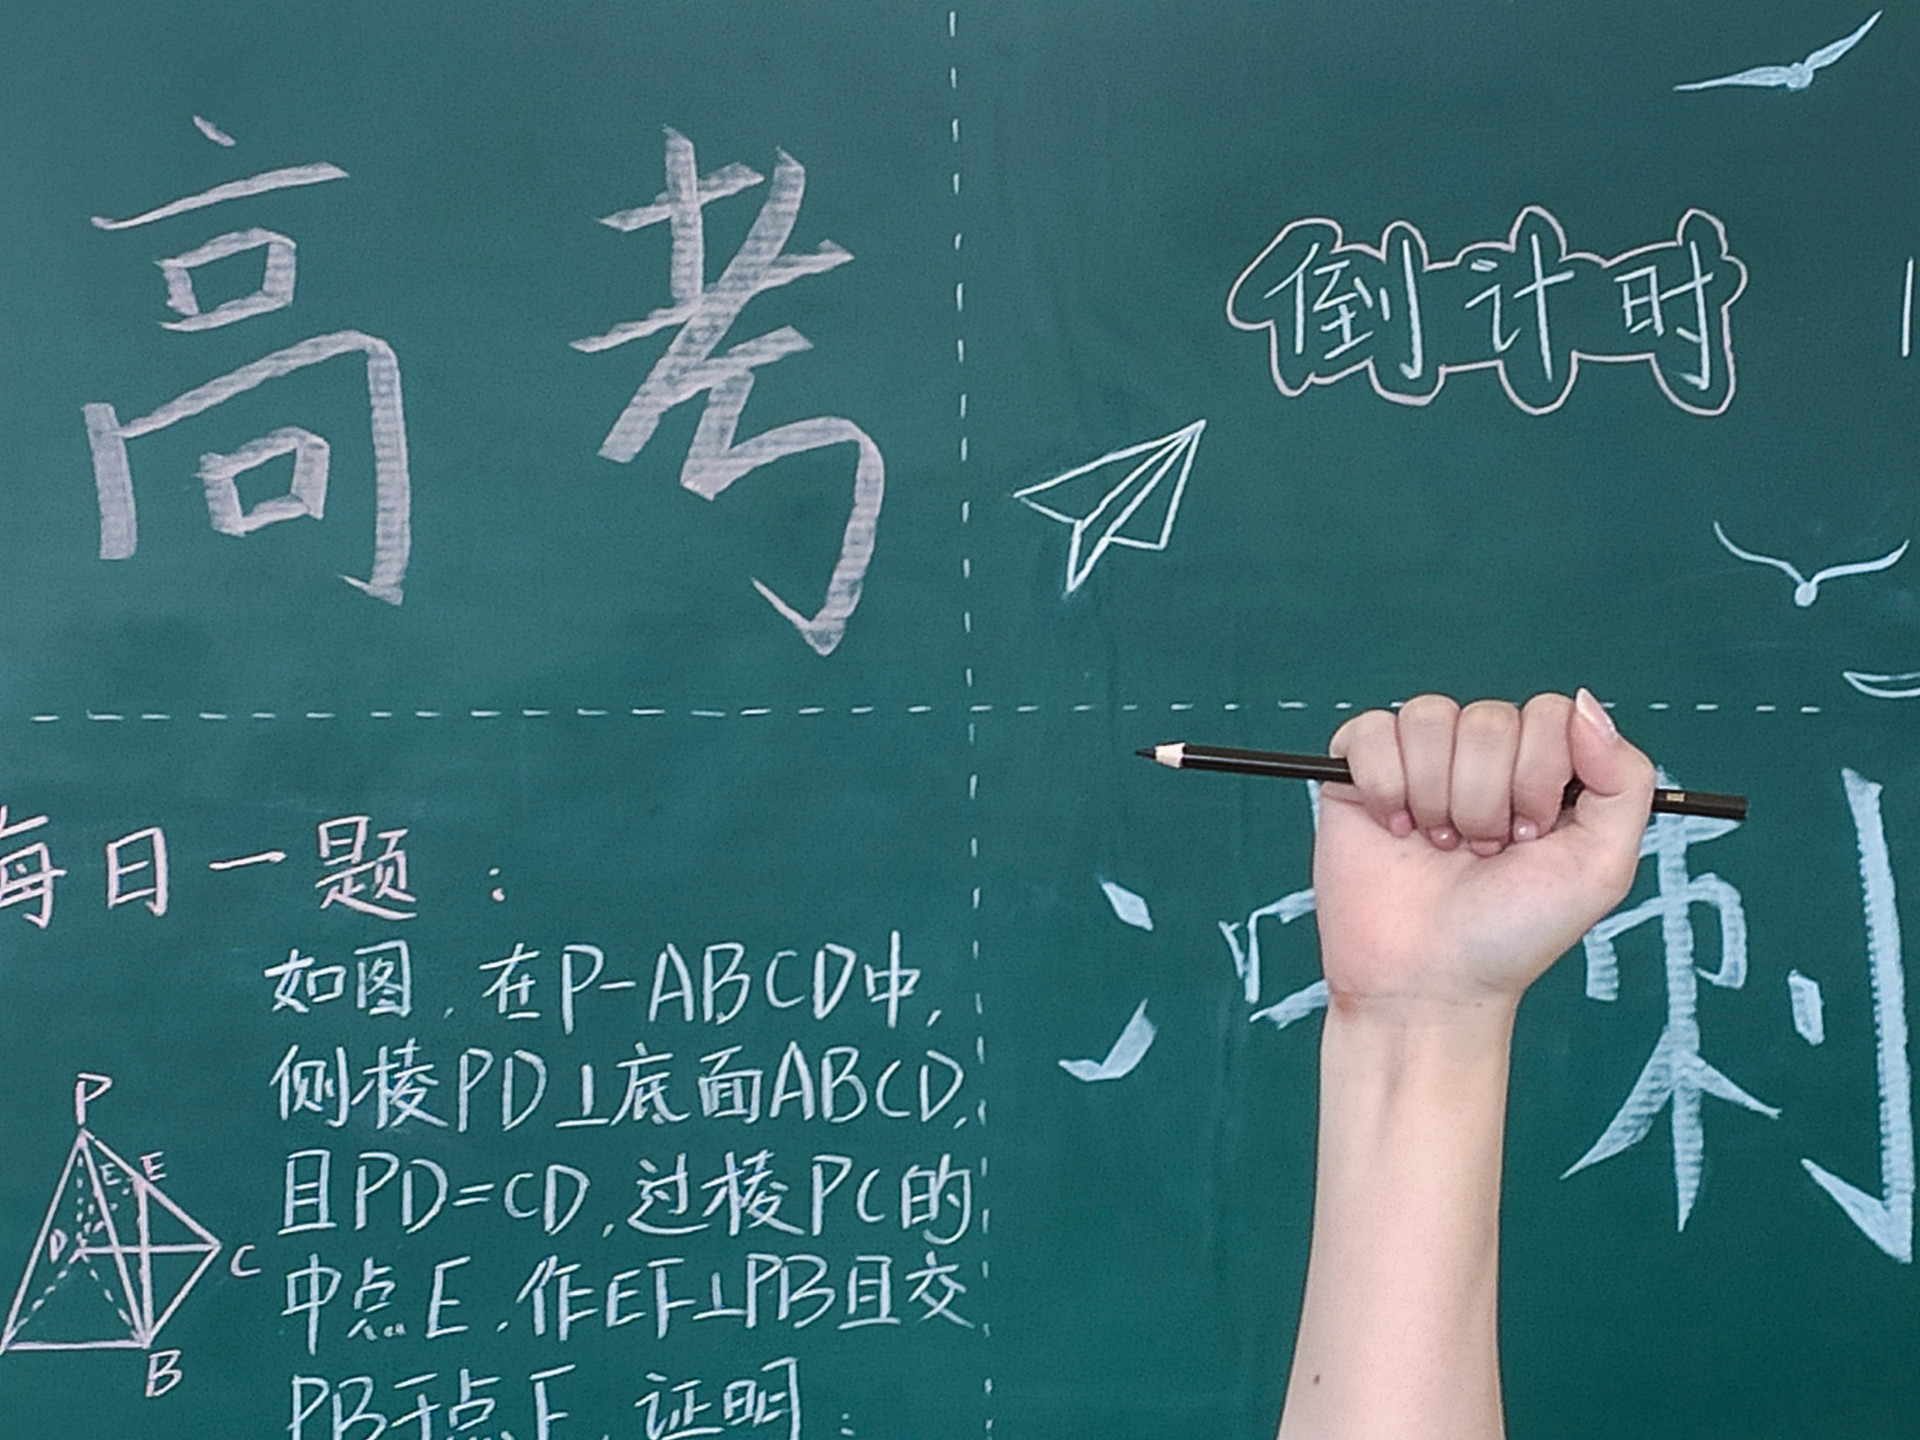 高考
倒计时
每日一题：
如图，在P-ABCD中，
侧棱PD⊥底面ABCD，
且PD=CD，过棱PC的
中点E，作EF⊥PB且交
PB于点F，证明：
P
E
E
D
C
B
冲刺